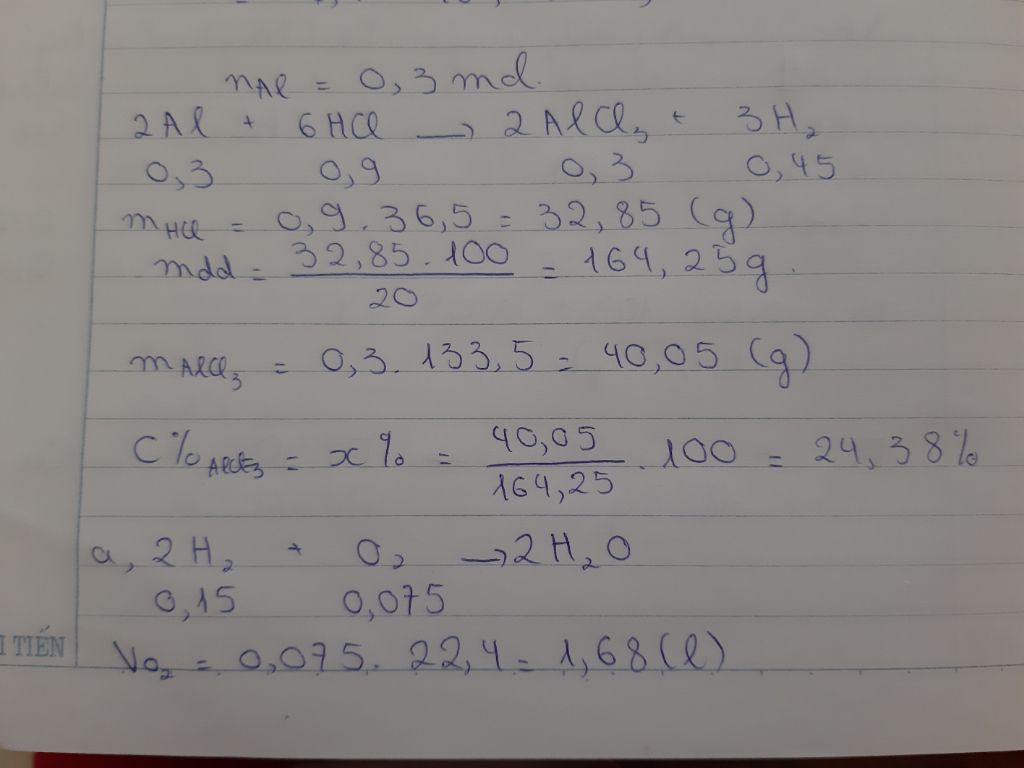 nAl = 0,3 mol.
2Al + 6HCl → 2AlCl₃ + 3H₂
0,3 0,9 0,3 0,45
mHCl = 0,9 . 36,5 = 32,85 (g)
mdd = 32,85 . 100 / 20 = 164,25g.
mAlCl₃ = 0,3 . 133,5 = 40,05 (g)
C%AlCl₃ = x% = 40,05 / 164,25 . 100 = 24,38%
a, 2H₂ + O₂ → 2H₂O
0,15 0,075
I TIẾN
VO₂ = 0,075 . 22,4 = 1,68 (l)